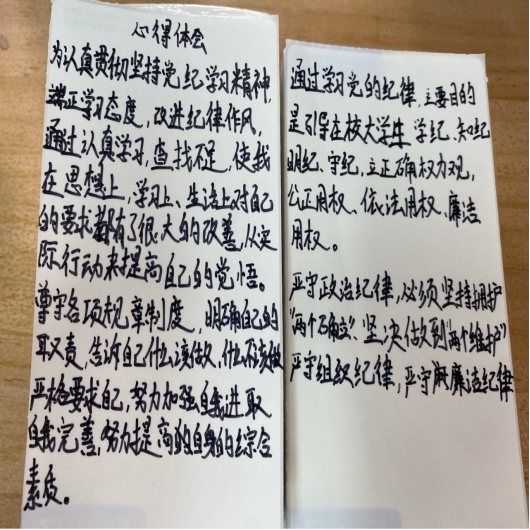 心得体会
为认真贯彻坚持党纪学习精神,
端正学习态度,改进纪律作风,
通过认真学习,查找不足,使我
在思想上,学习上、生活上对自己
的要求都有了很大的改善,从实
际行动来提高自己的觉悟。
遵守各项规章制度,明确自己的
职责,告诉自己什么该做,什么不该做
严格要求自己,努力加强自我进取
自我完善,努力提高的自身的综合
素质。
通过学习党的纪律,主要目的
是引导在校大学生 学纪、知纪
明纪、守纪,立正确权力观,
公正用权、依法用权、廉洁
用权。
严守政治纪律,必须坚持拥护
"两个确立"、坚决做到"两个维护"
严守组织纪律,严守廉洁纪律